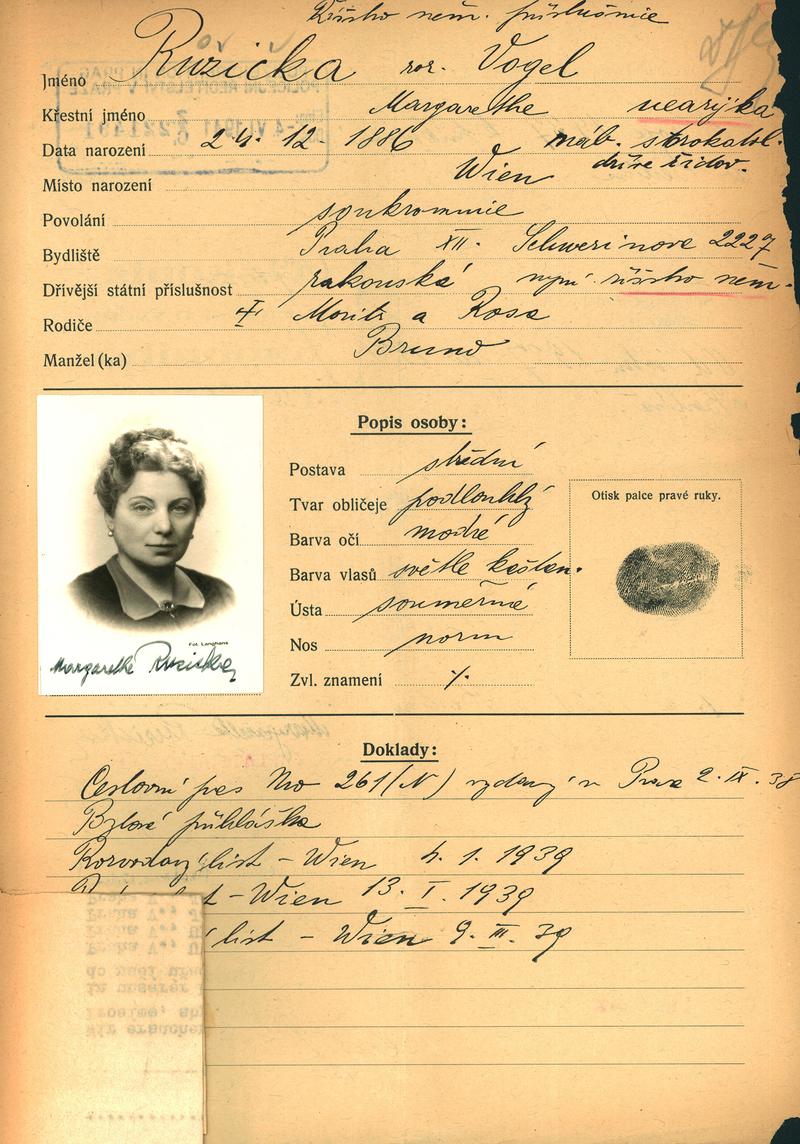 Říšsko něm. příslušnice
Jméno Ruzicka roz. Vogel
Křestní jméno Margarethe nearijka
Data narození 24. 12. 1886 náb. starokatol.
dříve židov.
Místo narození Wien
Povolání soukromnie
Bydliště Praha XII. Schwerinova 2227
Dřívější státní příslušnost rakouská nyní říšsko něm.
Rodiče Moritz a Rosa
Manžel (ka) Bruno
Popis osoby:
Postava střední
Tvar obličeje podlouhlý
Barva očí modré
Barva vlasů světle kaštan.
Ústa souměrné
Nos norm
Zvl. znamení ·/.
Otisk palce pravé ruky.
Fot. Langhans
Margarethe Ruzicka
Doklady:
Cestovní pas Nro 261(N) vydaný v Praze 2. IX. 38
Bytová přihláška
Rozvodový list – Wien 4. 1. 1939
t – Wien 13. I. 1939
list – Wien 9. III. 39